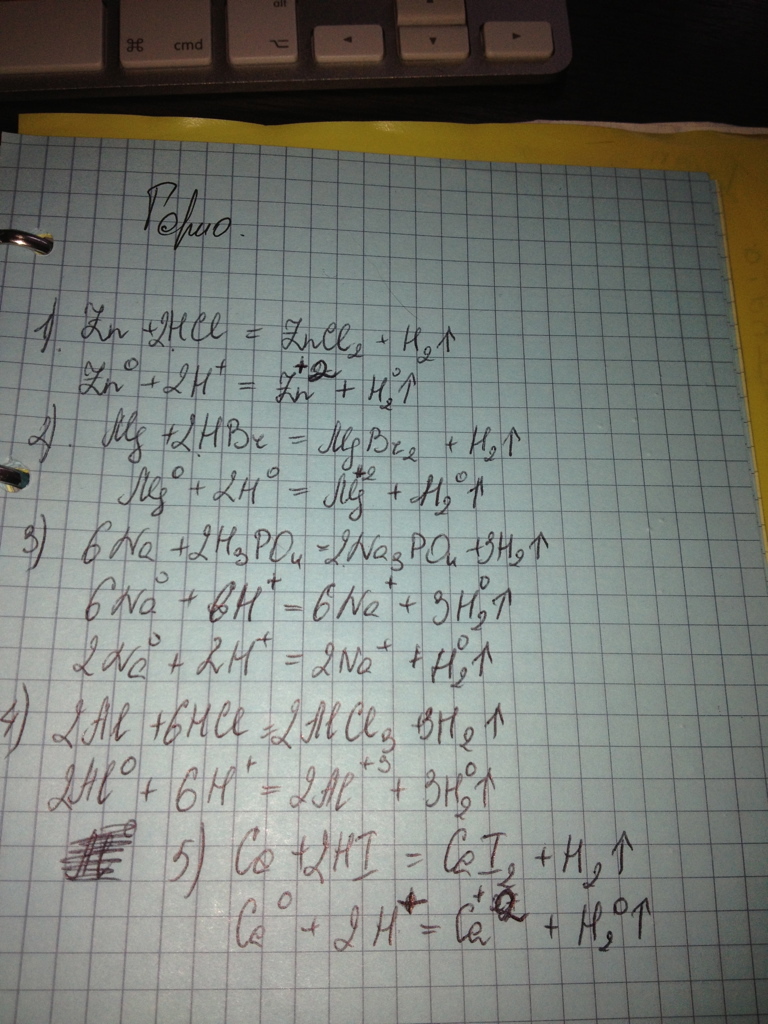 ⌘ cmd
alt
⌥
◄
▼
►
1). Zn + 2HCl = ZnCl₂ + H₂↑
Zn⁰ + 2H⁺ = Zn⁺² + H₂⁰↑
2). Mg + 2HBr = MgBr₂ + H₂↑
Mg⁰ + 2H⁰ = Mg⁺² + H₂⁰↑
3) 6Na + 2H₃PO₄ = 2Na₃PO₄ + 3H₂↑
6Na⁰ + 6H⁺ = 6Na⁺ + 3H₂⁰↑
2Na⁰ + 2H⁺ = 2Na⁺ + H₂⁰↑
4) 2Al + 6HCl = 2AlCl₃ + 3H₂↑
2Al⁰ + 6H⁺ = 2Al⁺³ + 3H₂⁰↑
5) Ca + 2HI = CaI₂ + H₂↑
Ca⁰ + 2H⁺ = Ca⁺² + H₂⁰↑